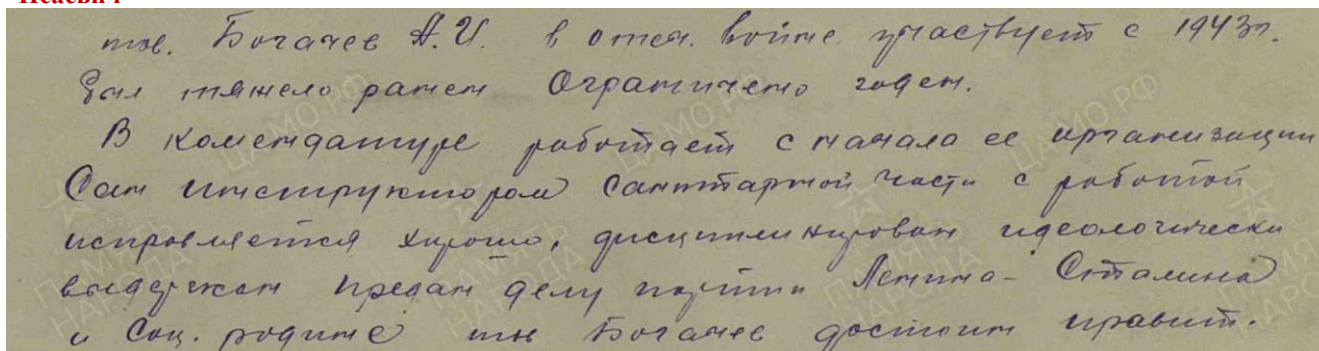 Исаевич
тов. Богачев А.И. в отеч. войне участвует с 1943г.
Был тяжело ранен Ограничено годен.
В комендатуре работает с начала ее организации
Сан инструктором Санитарной части с работой
исправляется хорошо, дисциплинирован идеологически
выдержан предан делу партии Ленина - Сталина
и Соц. родине тов Богачев достоин правит.